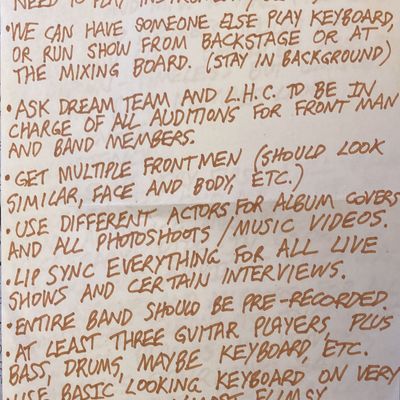 NEED TO PLAY
•WE CAN HAVE SOMEONE ELSE PLAY KEYBOARD,
OR RUN SHOW FROM BACKSTAGE OR AT
THE MIXING BOARD. (STAY IN BACKGROUND)
•ASK DREAM TEAM AND L.H.C. TO BE IN
CHARGE OF ALL AUDITIONS FOR FRONT MAN
AND BAND MEMBERS.
•GET MULTIPLE FRONTMEN (SHOULD LOOK
SIMILAR, FACE AND BODY, ETC.)
•USE DIFFERENT ACTORS FOR ALBUM COVERS
AND ALL PHOTOSHOOTS/MUSIC VIDEOS.
•LIP SYNC EVERYTHING FOR ALL LIVE
SHOWS AND CERTAIN INTERVIEWS.
•ENTIRE BAND SHOULD BE PRE-RECORDED.
•AT LEAST THREE GUITAR PLAYERS, PLUS
BASS, DRUMS, MAYBE KEYBOARD, ETC.
USE BASIC LOOKING KEYBOARD ON VERY
FLIMSY